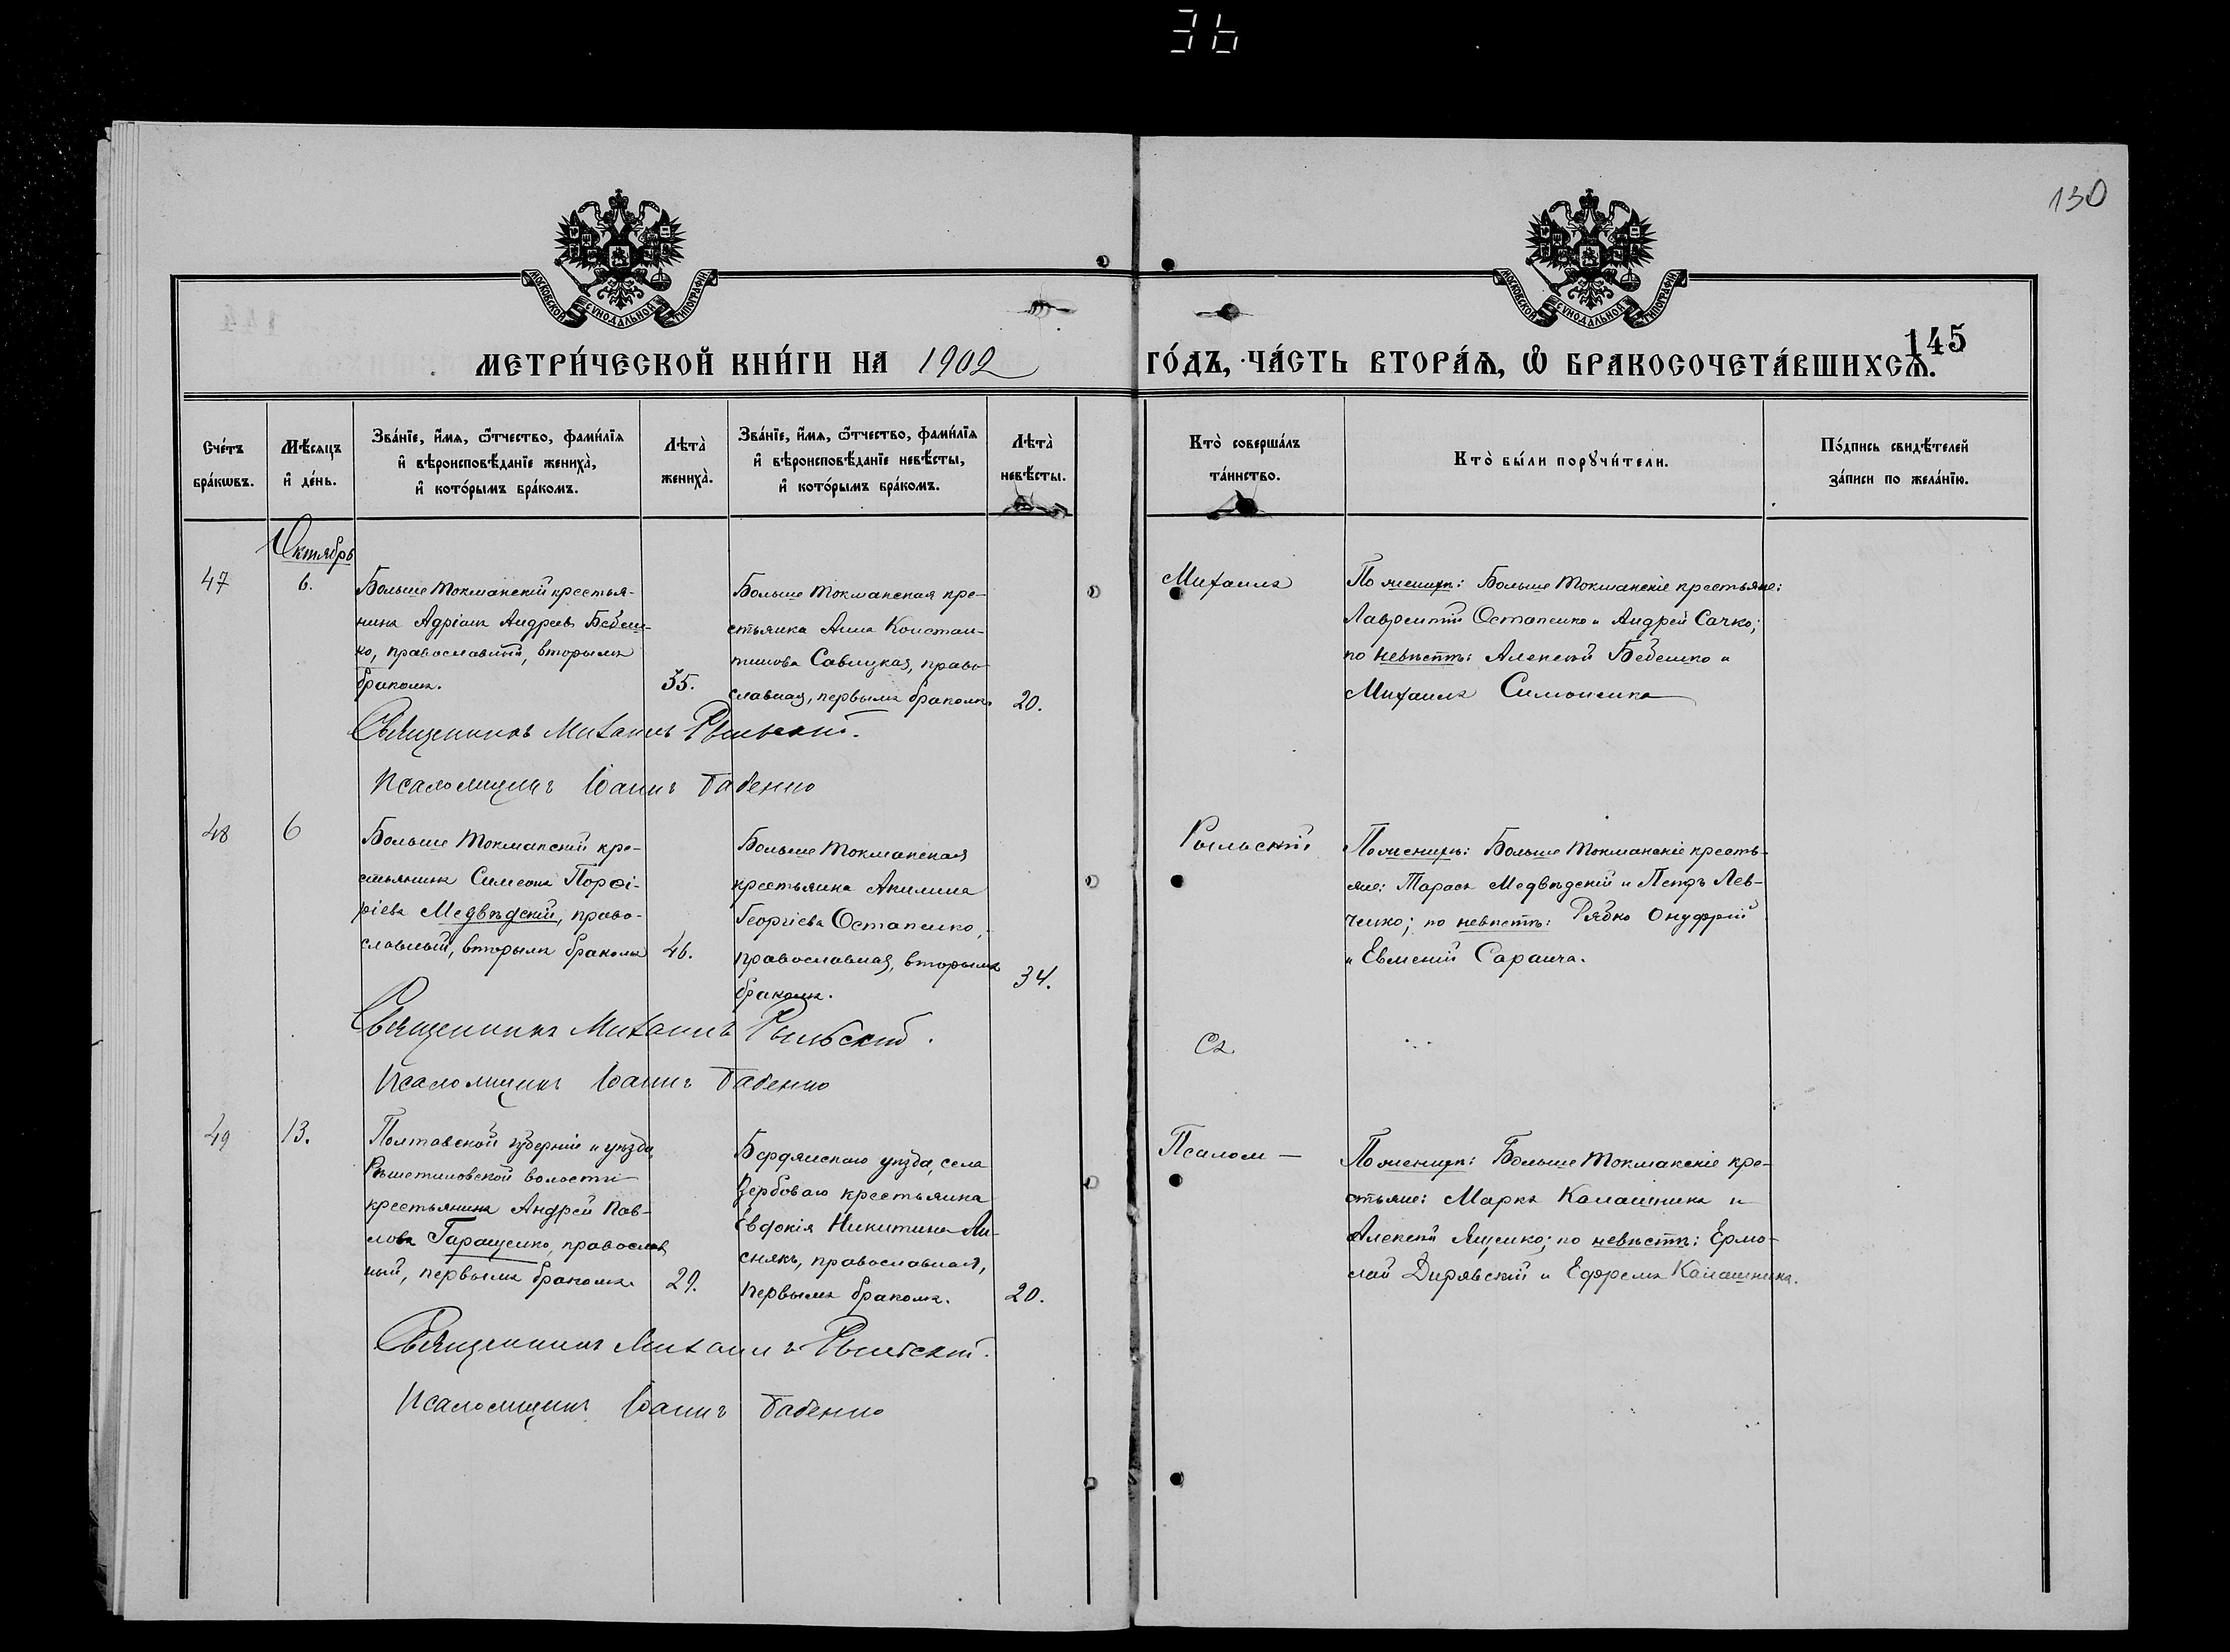 36
130
МОСКОВСКОЙ СѴНОДАЛЬНОЙ ТИПОГРАФІИ
МОСКОВСКОЙ СѴНОДАЛЬНОЙ ТИПОГРАФІИ
145
МЕТРИ́ЧЕСКОЙ КНИ́ГИ НА 1902 ГО́ДЪ, ЧА́СТЬ ВТОРА́Ѧ, Ѡ҆ БРАКОСОЧЕТА́ВШИХСѦ.
Сче́тъ бра́кѡвъ.
Мѣ́сѧцъ и҆ де́нь.
Зва́нїе, и҆́мѧ, ѻ҆́тчество, фами́лїѧ и҆ вѣроисповѣ́данїе жениха̀, и҆ кото́рымъ бра́комъ.
Лѣта̀ жениха̀.
Зва́нїе, и҆́мѧ, ѻ҆́тчество, фами́лїѧ и҆ вѣроисповѣ́данїе невѣ́сты, и҆ кото́рымъ бра́комъ.
Лѣта̀ невѣ́сты.
Кто̀ соверша́лъ та́инство.
Кто̀ бы́ли порꙋчи́тели.
По́дпись свидѣ́телей за́писи по жела́нїю.
Октябрь
47
6.
Больше Токманскій крестья-
нинъ Адріанъ Андреевъ Бебеш-
ко, православный, вторымъ
бракомъ.
35.
Больше Токманская кре-
стьянка Анна Констан-
тинова Савицкая, право-
славная, первымъ бракомъ.
20.
Михаилъ
По женихѣ: Больше Токманскіе крестьяне:
Лаврентій Остапенко и Андрей Сачко;
по невѣстѣ: Алексѣй Бебешко и
Михаилъ Симоненко
Священникъ Михаилъ Рыльскій.
Псаломщикъ Іоаннъ Бабенко
48
6
Больше Токманскій кре-
стьянинъ Симеонъ Порфи-
ріевъ Медвѣдскій, право-
славный, вторымъ бракомъ
46.
Больше Токманская
крестьянка Акилина
Георгіева Остапенко,
православная, вторымъ
бракомъ.
34.
Рыльскій
По женихѣ: Больше Токманскіе кресть-
яне: Тарасъ Медвѣдскій и Петръ Лев-
ченко; по невѣстѣ: Рябко Онуфрій
и Евменій Саранча.
Священникъ Михаилъ Рыльскій.
Съ
Псаломщикъ Іоаннъ Бабенко
49
13.
Полтавской губерніи и уѣзда,
Рѣшетиловской волости
крестьянинъ Андрей Пав-
ловъ Гаращенко, православ-
ный, первымъ бракомъ.
29.
Бердянскаго уѣзда, села
Вербоваго крестьянка
Евдокія Никитина Ли-
снякъ, православная,
первымъ бракомъ.
20.
Псалом-
По женихѣ: Больше Токмакскіе кре-
стьяне: Маркъ Калашникъ и
Алексѣй Яценко; по невѣстѣ: Ермо-
лай Дирявскій и Ефремъ Калашникъ.
Священникъ Михаилъ Рыльскій.
Псаломщикъ Іоаннъ Бабенко